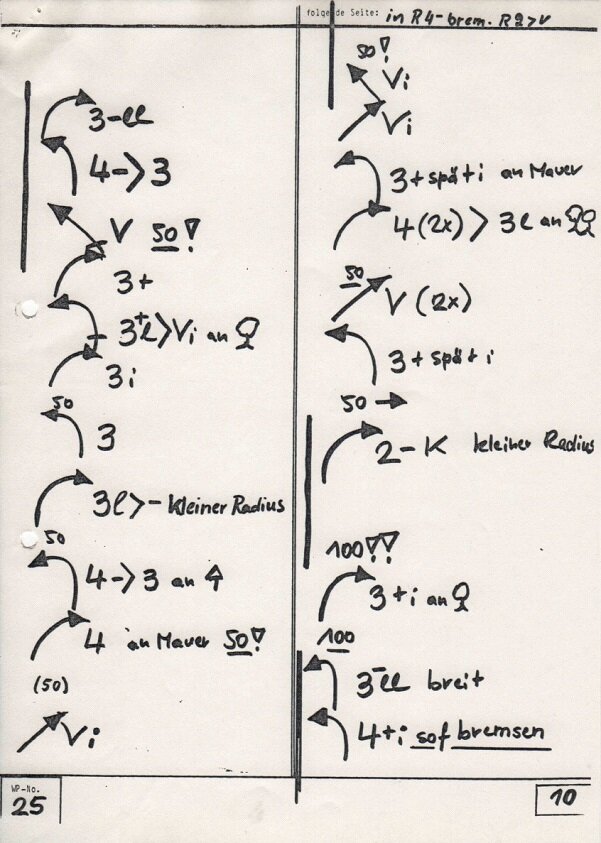 folgende Seite: in R4-brem. R2>V
3-ll
4->3
V 50!
3+
3+l>Vi an
3i
50
3
3l>- kleiner Radius
50
4->3 an
4 an Mauer 50!
(50)
Vi
WP-No.
25
50!
Vi
Vi
3+spät i an Mauer
4(2x)>3l an
50
V (2x)
3+spät i
50 →
2-K kleiner Radius
100!!
3+i an
100
3-ll breit
4+i sof bremsen
10